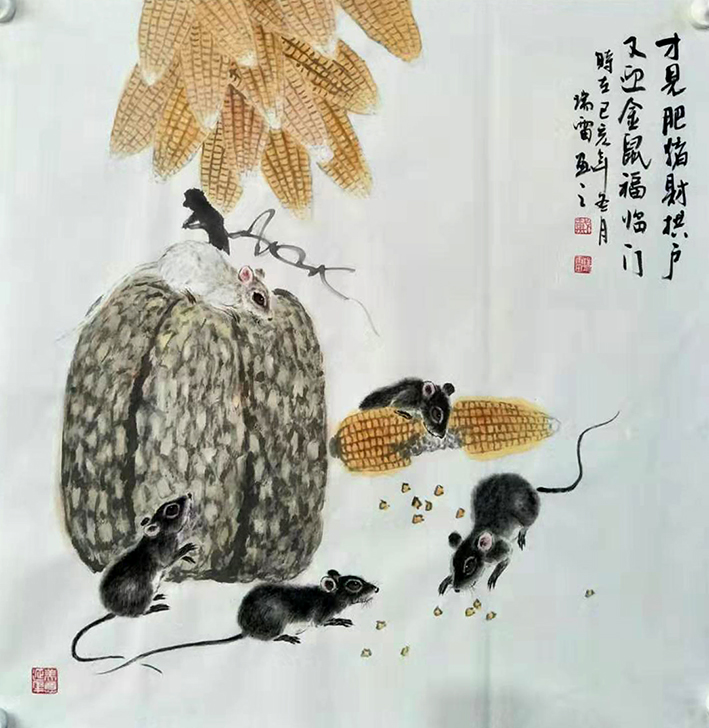 才见肥猪财拱户
又迎金鼠福临门
時在己亥年冬月
瑞雷画之